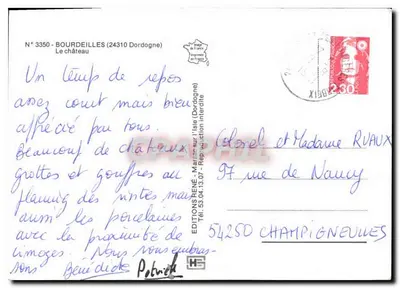 N° 3350 - BOURDEILLES (24310 Dordogne)
Le château
Un temps de repos
assez court mais bien
apprécié par tous.
Beaucoup de châteaux
grottes et gouffres au
planning des visites mais
aussi les porcelaines
avec la proximité de
Limoges ! Nous vous embras-
sons. Bénédicte Patrick
EDITIONS RENÉ - sur l'Isle (Dordogne)
Tél. 53.04.13.07 - Reproduction interdite
2,30
Colonel et Madame RUAUX
97 rue de Nancy
54250 CHAMPIGNEULLES